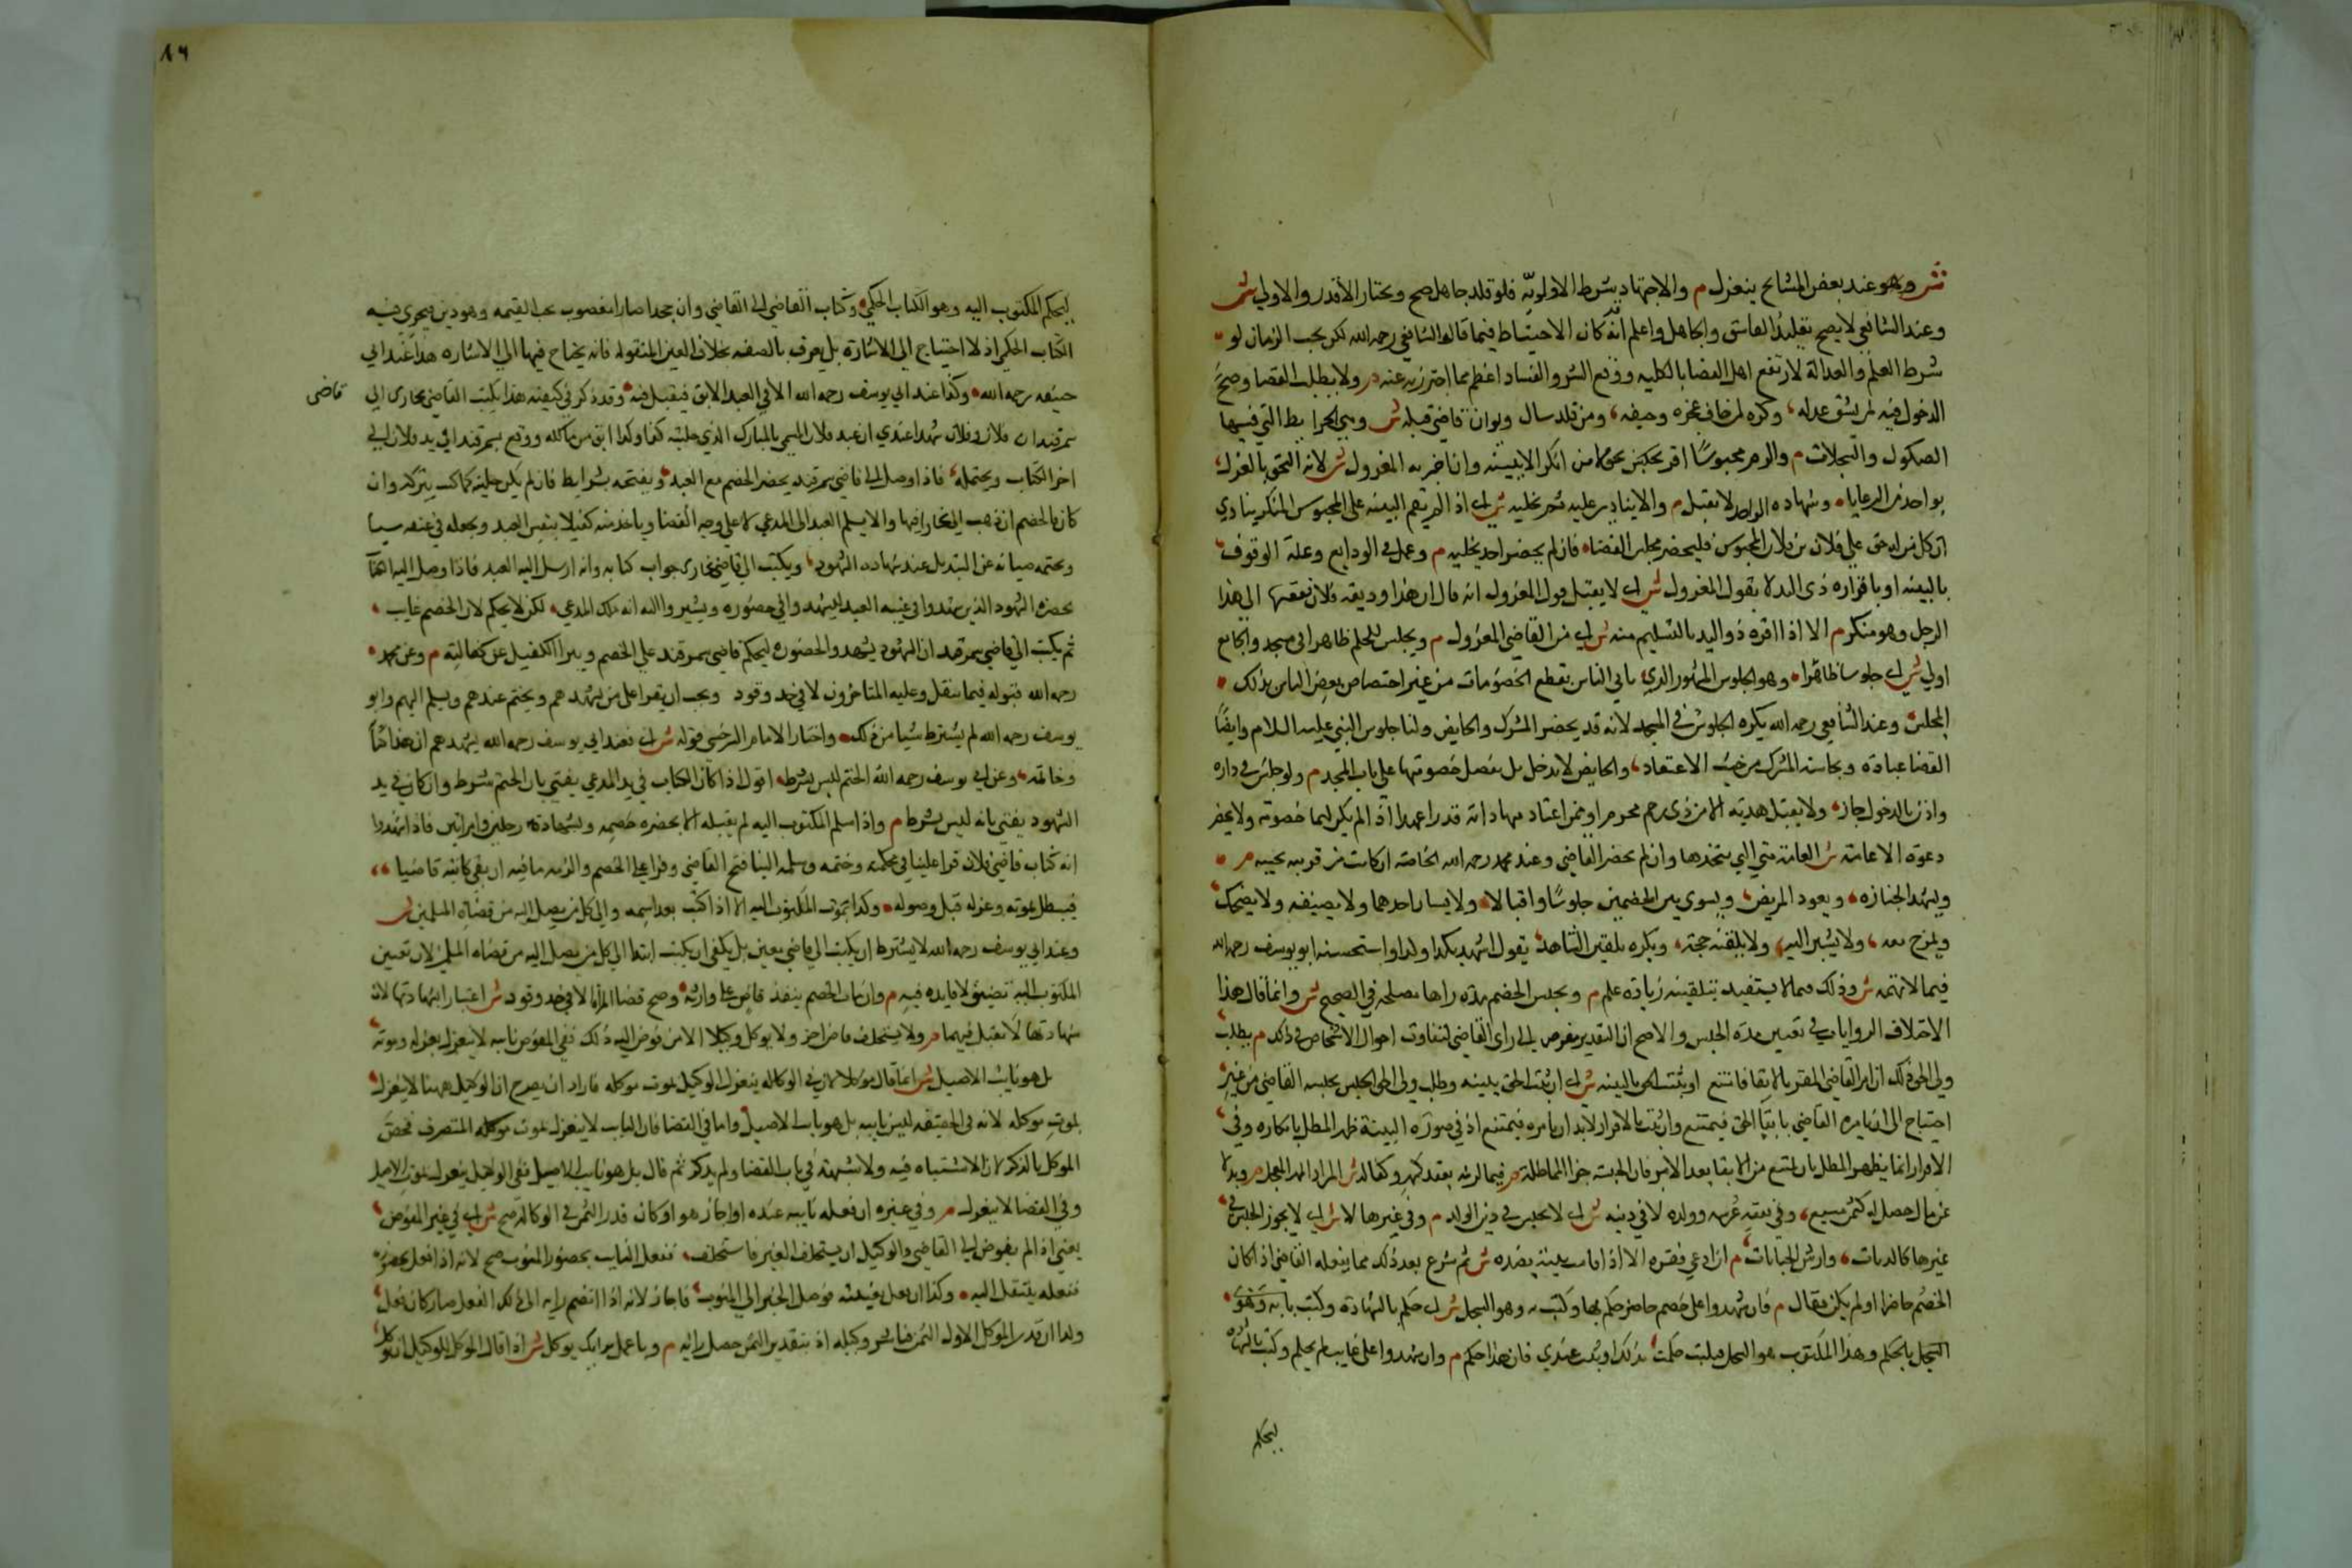 ش وهو عند بعض المشايخ ينعزل م والاجتهاد شرط الاولوية فلو قلد جاهل صح ويختار الأقدر والاولي ش
وعند الشافعي لا يصح تقليد الفاسق والجاهل واعلم انه قد كان الاحتياط فيما قاله الشافعي رحمه الله لكن بحسب الزمان لو
شرط العلم والعدالة لارتفع اهل القضا بالكليه ووقع الشر والفساد اعظم مما احترز به عنه م ولا يطلب القضا وصح
الدخول فيه لمن يثق عدله وكره لمن خاف عجزه وحيفه ومن قلد سال ديوان قاض قبله ش وهي الخرايط التي فيها
الصكوك والسجلات م والزم محبوسا اقر بحق لا من انكر الا ببينه وان اخبر به المعزول ش لانه التحق بالعزل
بواحد من الرعايا وشهادة الواحد لا تقبل م والا ينادي عليه ثم يخليه ش اي اذ الم تقم البينه على المحبوس المنكر ينادي
ان كل من له حق علي فلان بن فلان المحبوس فليحضر مجلس القضاء فان لم يحضر احد يخليه م وعمل في الودايع وغلة الوقوف
بالبينه او باقراره ذي اليد لا بقول المعزول ش اي لا يقبل قول المعزول انه قال ان هذا وديعة فلان دفعتها الى هذا
الرجل وهو منكر م الا اذا اقر ذو اليد بالتسليم منه ش اي من القاضي المعزول م ويجلس للحكم ظاهرا في مسجد والجامع
اولي ش اي جلوسا ظاهرا وهو الجلوس المشهور الذي ياتي الناس لقطع الخصومات من غير اختصاص بعض الناس بذلك
المجلس وعند الشافعي رحمه الله يكره الجلوس في المسجد لانه قد يحضر المشرك والحايض ولنا جلوس النبي عليه السلام وايضا
القضا عبادة ونجاسة المشرك من حيث الاعتقاد والحايض لا تدخل بل يفصل خصومتها علي باب المسجد م ولو جلس في داره
واذن بالدخول جاز ولا يقبل هديته الا من ذي رحم محرم او ممن اعتاد مهاداته قدرا عهد اذا لم يكن لهما خصومة ولا يحضر
دعوة الا عامة ش العامة هي التي يتخذها وان لم يحضر القاضي وعند محمد رحمه الله الخاصة ان كانت من قريبه يجيبه م
ويشهد الجنازه ويعود المريض ويسوي بين الخصمين جلوسا واقبالا ولا يسار احدهما ولا يضيفه ولا يضحك
ويمزح معه ولا يشير اليه ولا يلقنه حجة ويكره تلقين الشاهد بقوله اشهد بكذا وكذا واستحسنه ابو يوسف رحمه الله
فيما لا تهمه ش وذلك فيما لا يستفيد بتلقينه زيادة علم م ويحبس الخصم مدة راها مصلحه في الصحيح ش وانما قال هذا
الاختلاف الروايات في تعيين مدة الحبس والاصح ان التقدير مفوض الى راى القاضي لتفاوت احوال الاشخاص في ذلك م بطلب
ولي الحق ذلك ان امر القاضي المقر بالايفا فامتنع او ثبت الحق بالبينه ش اي ان ثبت الحق ببينه وطلب ولي الحق الحبس يحبسه القاضي من غير
احتياج الى ان يامره القاضي بايفاء الحق فيمتنع وان ثبت بالاقرار لابد ان يامره فيمتنع اذ في صورة البينة ظهر المطل بانكاره وفي
الاقرار انما يظهر المطل بان يمتنع من الايفا بعد الامر فان الحبس جزا المماطلة م فيما لزمه بعقد كمهر وكفالة ش المراد المهر المعجل م وبدلا
عن مال حصل له كثمن مبيع وفي نفقة عرسه وولده لا في دينه ش اي لا يحبس في دين الولد م وفي غيرها لا ش اي لا يجوز الحبس في
غيرها كالديات وارش الجنايات م ان ادعي فقره الا اذا قامت بينة بضده ش ثم شرع بعد ذلك مما يفعله القاضي اذا كان
الخصم حاضرا او لم يكن فقال م فان شهدوا على خصم حاضر حكم بها وكتب به وهو السجل ش اي حكم بالشهادة وكتب بانه وهو
السجل بالحكم وهذا المكتوب هو السجل فيكتب حكمت بذلك او ثبت عندي فان هذا حكم م وان شهدوا علي غايب لم يحكم وكتب بالشهادة
ليحكم
٨٦
ليحكم المكتوب اليه وهو الكتاب الحكمي وكتاب القاضي الى القاضي وان جحدا صار المغصوب يجب القيمه وهو دين فيجري فيه
الكتاب الحكمي اذ لا احتياج الي الاشارة بل يعرف بالصفه بخلاف العين المنقوله فانه يحتاج فيها الي الاشاره هذا عند ابي
حنيفه رحمه الله وكذا عند ابي يوسف رحمه الله الا في العبد الابق فيقبل فيه وقد ذكر في كيفيته هذا يكتب القاضي بخارى الي قاضي
سمرقند ان فلان وفلان شهدا عندي ان عبد فلان المسمي بالمبارك الذي حليته كذا وكذا ابق من مالكه ووقع بسمرقند في يد فلان الى
اخر الكتاب ويختمه فاذا وصل الي قاضي سمرقند يحضر الخصم مع العبد ويفتحه بشرايط فان لم يكن حليته كما كتب يتركه وان
كان فالخصم ان ذهب الي بخارا فيها والا يسلم العبد الى المدعي لا علي وجه القضا وياخذ منه كفيلا بنفس العبد ويجعله في عنقه سيا
ويختمه صيانة عن التبديل عند شهادة الشهود ويكتب الي قاضي بخارى جواب كتابه وانه ارسل اليه العبد فاذا وصل اليه الكتاب
يحضره الشهود الذين شهدوا في غيبة العبد ليشهدوا في حضوره ويشيروا الله انه ملك المدعي لكن لا يحكم لان الخصم غايب
ثم يكتب الي قاضي سمرقند ان الشهود يشهدوا لحضوره ليحكم قاضي سمرقند علي الخصم ويبرا الكفيل عن كفالته م وعن محمد
رحمه الله قبوله فيما ينقل وعليه المتاخرون لا في حد وقود ويجب ان يقرا علي من يشهدهم ويختم عندهم ويسلم اليهم وابو
يوسف رحمه الله لم يشترط شيا من ذلك واختار الامام السرخسي قوله ش اي فعند ابي يوسف رحمه الله يشهدهم ان هذا كتابه
وخاتمه وعن ابي يوسف رحمه الله الختم ليس بشرط اقول اذا كان الكتاب في يد المدعي يفتي بان الختم شرط وان كان في يد
الشهود يفتي بانه ليس بشرط م واذا سلم المكتوب اليه لم يقبله الا بحضره خصمه وبشهادة رجلين او رجل وامراتين فاذا شهدوا
انه كتاب قاضي فلان قرا علينا في محكمته وختمه وسلمه الينا فتح القاضي وقرا علي الخصم والزمه ما فيه ان بقي كاتبه قاضيا
فيبطل بموته وعزله قبل وصوله وكذا بموت المكتوب اليه الا اذا كتب بعد اسمه والي كل من يصل اليه من قضاة المسلمين ش
وعند ابي يوسف رحمه الله لا يشترط ان يكتب الي قاضي معين بل يكفي ان يكتب ابتدا الي كل من يصل اليه من قضاة المسلمين لان تعيين
المكتوب اليه تضييق لا فايده فيه م وان مات الخصم ينفذ قاض علي وارثه وصح قضا المراة الا في حد وقود ش اعتبارا بشهادتها لان
شهادتها لا تقبل فيهما م ولا يستخلف قاض اخر ولا يوكل وكيلا الا من فوض اليه ذلك ففي المفوض نايبه لا ينعزل بعزله وموته
بل هو نايب الاصيل ش انما قال موكلا لان في الوكاله ينعزل الوكيل بموت موكله فاراد ان يصرح ان الوكيل ههنا لا ينعزل
بموت موكله لانه في الحقيقه ليس نايبه بل هو نايب الاصيل واما في القضا فان النايب لا ينعزل بموت موكله المتصرف فخص
الموكل بالذكر لان الاشتباه فيه ولا شبهة في باب القضا ولم يذكر ثم قال بل هو نايب الاصيل ففي الوكيل ينعزل بموت الاصيل
وفي القضا لا ينعزل م وفي غيره ان فعله نايبه عنده او اجاز هو او كان قدر الثمن في الوكالة صح ش اي في غير المفوض
يعني اذا لم يفوض الى القاضي والوكيل ان يستخلف الغير فاستخلف ففعل النايب بحضور المنوب صح لانه اذا فعل بحضرته
ففعله ينتقل اليه وكذا ان فعل بغيبته فوصل الخبر الي المنوب فاجاز لانه اذا انضم رايه الى ذلك الفعل صار كان فعل
وكذا ان قدر الموكل الاول الثمن فباشر وكيله اذ بتقدير الثمن حصل رايه م وباعمل برايك يوكل ش اذا قال الموكل للوكيل ان توكل